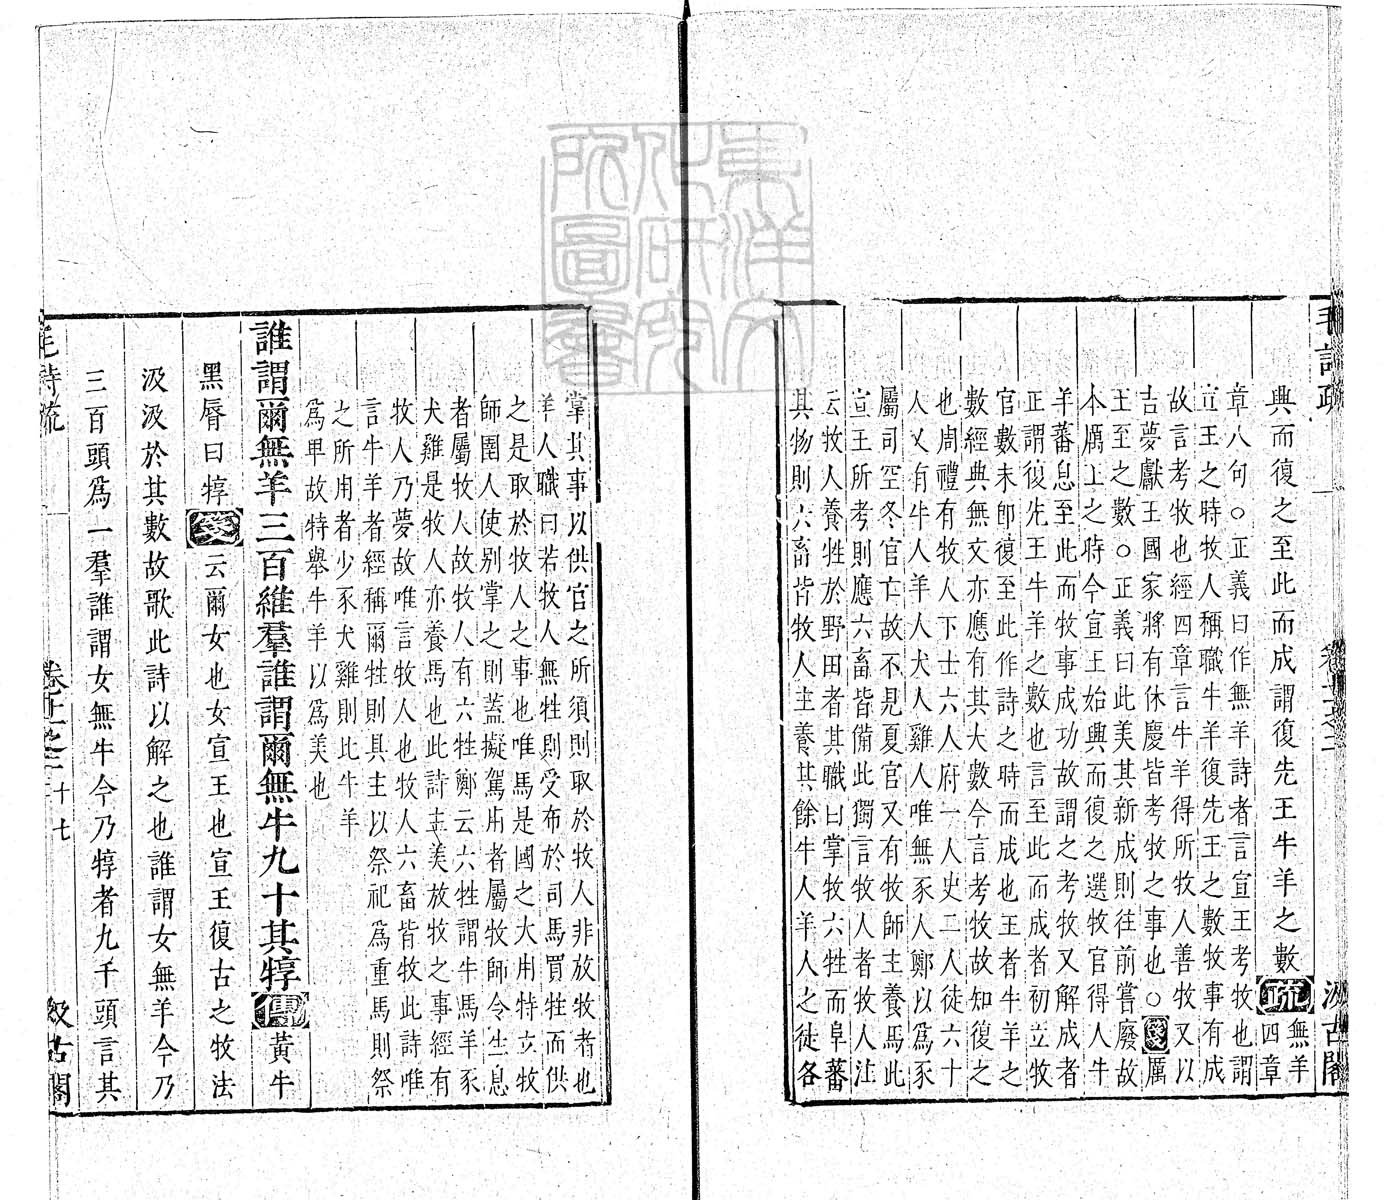 毛詩疏 汲古閣
典而復之至此而成謂復先王牛羊之數疏無羊
四章
章八句○正義曰作無羊詩者言宣王考牧也謂
宣王之時牧人稱職牛羊復先王之數牧事有成
故言考牧也經四章言牛羊得所牧人善牧又以
吉夢獻王國家將有休慶皆考牧之事也○箋厲
王至之數○正義曰此美其新成則往前嘗廢故
本厲王之時今宣王始興而復之選牧官得人牛
羊蕃息至此而牧事成功故謂之考牧又解成者
正謂復先王牛羊之數也言至此而成者初立牧
官數未卽復至此作詩之時而成也王者牛羊之
數經典無文亦應有其大數今言考牧故知復之
也周禮有牧人下士六人府一人史二人徒六十
人又有牛人羊人犬人雞人唯無豕人鄭以爲豕
屬司空冬官亡故不見夏官又有牧師主養馬此
宣王所考則應六畜皆備此獨言牧人者牧人注
云牧人養牲於野田者其職曰掌牧六牲而阜蕃
其物則六畜皆牧人主養其餘牛人羊人之徒各
掌其事以供官之所須則取於牧人非放牧者也
羊人職曰若牧人無牲則受布於司馬買牲而供
之是取於牧人之事也唯馬是國之大用特立牧
師圉人使别掌之則蓋擬駕用者屬牧師令生息
者屬牧人故牧人有六牲鄭云六牲謂牛馬羊豕
犬雞是牧人亦養馬也此詩主美放牧之事經有
牧人乃夢故唯言牧人也牧人六畜皆牧此詩唯
言牛羊者經稱爾牲則具主以祭祀爲重馬則祭
之所用者少豕犬雞則比牛羊
爲卑故特舉牛羊以爲美也
誰謂爾無羊三百維羣誰謂爾無牛九十其犉傳黃牛
黑脣曰犉箋云爾女也女宣王也宣王復古之牧法
汲汲於其數故歌此詩以解之也誰謂女無羊今乃
三百頭爲一羣誰謂女無牛今乃犉者九千頭言其
毛詩疏 卷十一之二 十七 汲古閣
東洋文化研究所圖書